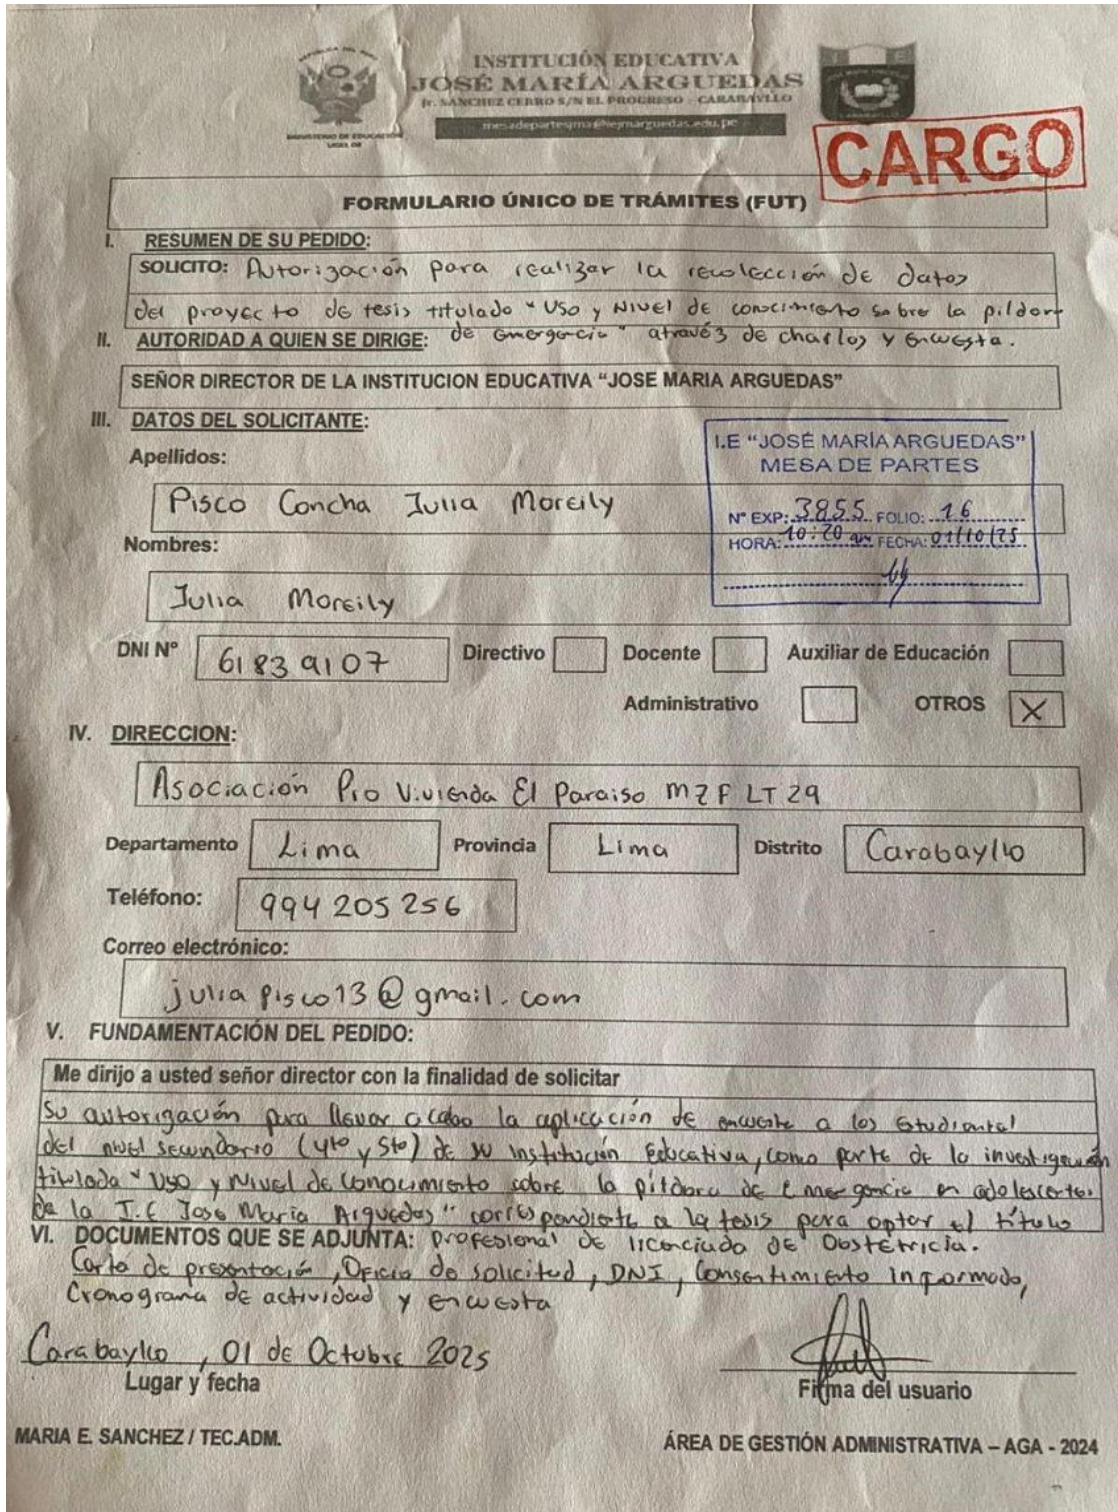 REPÚBLICA DEL PERÚ
MINISTERIO DE EDUCACIÓN
INSTITUCIÓN EDUCATIVA
JOSÉ MARÍA ARGUEDAS
Jr. SANCHEZ CERRO S/N EL PROGRESO - CARABAYLLO
mesadepartesjma@iejmarguedas.edu.pe
CARGO
FORMULARIO ÚNICO DE TRÁMITES (FUT)
I. RESUMEN DE SU PEDIDO:
SOLICITO: Autorización para realizar la recolección de datos
del proyecto de tesis titulado "Uso y Nivel de conocimiento sobre la pildora
de emergencia" através de charlas y encuesta.
II. AUTORIDAD A QUIEN SE DIRIGE:
SEÑOR DIRECTOR DE LA INSTITUCION EDUCATIVA "JOSE MARIA ARGUEDAS"
III. DATOS DEL SOLICITANTE:
Apellidos:
Pisco Concha Julia Moreily
I.E "JOSÉ MARÍA ARGUEDAS"
MESA DE PARTES
N° EXP: 3855 FOLIO: 16
HORA: 10:20 am FECHA: 01/10/25
Nombres:
Julia Moreily
DNI N° 61839107 Directivo Docente Auxiliar de Educación
Administrativo OTROS X
IV. DIRECCION:
Asociación Pro Vivienda El Paraiso MZ F LT 29
Departamento Lima Provincia Lima Distrito Carabayllo
Teléfono: 994 205 256
Correo electrónico:
juliapisco13@gmail.com
V. FUNDAMENTACIÓN DEL PEDIDO:
Me dirijo a usted señor director con la finalidad de solicitar
su autorización para llevar a cabo la aplicación de encuesta a los estudiantes
del nivel secundario (4to y 5to) de su Institución Educativa, como parte de la investigación
titulada "Uso y Nivel de conocimiento sobre la píldora de Emergencia en adolescentes
de la I.E José María Arguedas" correspondiente a la tesis para optar el título
profesional de licenciado de Obstetricia.
VI. DOCUMENTOS QUE SE ADJUNTA:
Carta de presentación, Oficio de solicitud, DNI, Consentimiento informado,
Cronograma de actividad y encuesta
Carabayllo, 01 de Octubre 2025
Lugar y fecha
Firma del usuario
MARIA E. SANCHEZ / TEC.ADM.
ÁREA DE GESTIÓN ADMINISTRATIVA – AGA - 2024